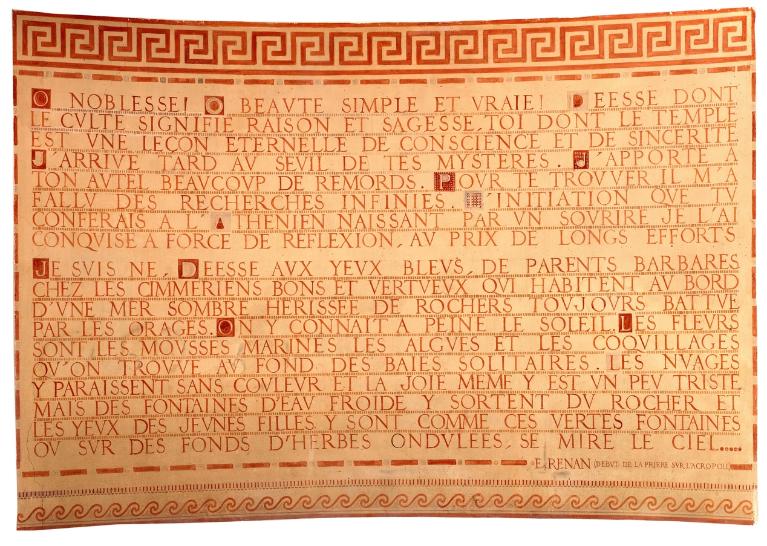 O NOBLESSE! O BEAVTE SIMPLE ET VRAIE! DEESSE DONT
LE CVLTE SIGNIFIE RAISON ET SAGESSE, TOI DONT LE TEMPLE
EST VNE LEÇON ETERNELLE DE CONSCIENCE ET DE SINCERITE
J'ARRIVE TARD AV SEVIL DE TES MYSTERES. J'APPORTE A
TON AVTEL BEAVCOVP DE REMORDS. POVR TE TROVVER IL M'A
FALLV DES RECHERCHES INFINIES. L'INITIATION QVE TV
CONFERAIS A L'ATHENIEN NAISSANT PAR VN SOVRIRE JE L'AI
CONQVISE A FORCE DE REFLEXION, AV PRIX DE LONGS EFFORTS
JE SVIS NE, DEESSE AVX YEVX BLEVS, DE PARENTS BARBARES
CHEZ LES CIMMERIENS BONS ET VERTVEVX QVI HABITENT AV BORD
D'VNE MER SOMBRE HERISSEE DE ROCHERS TOVJOVRS BATTVE
PAR LES ORAGES. ON Y CONNAIT A PEINE LE SOLEIL. LES FLEVRS
SONT LES MOVSSES MARINES LES ALGVES ET LES COQVILLAGES
QV'ON TROVVE AV FOND DES BAIES SOLITAIRES. LES NVAGES
Y PARAISSENT SANS COVLEVR ET LA JOIE MEME Y EST VN PEV TRISTE
MAIS DES FONTAINES D'EAV FROIDE Y SORTENT DV ROCHER ET
LES YEVX DES JEVNES FILLES Y SONT COMME CES VERTES FONTAINES
OV SVR DES FONDS D'HERBES ONDVLEES, SE MIRE LE CIEL.....
E. RENAN (DEBVT DE LA PRIERE SVR L'ACROPOLE)